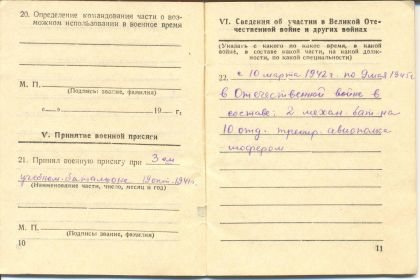 20. Определение командования части о воз-
можном использовании в военное время
М. П.
(Подпись, звание, фамилия)
« » 19 г.
V. Принятие военной присяги
21. Принял военную присягу при 3 ем
учебном батальоне 19 окт. 1941 г.
(Наименование части, число, месяц и год)
М. П.
(Подпись, звание, фамилия)
10
VI. Сведения об участии в Великой Оте-
чественной войне и других войнах
(Указать с какого по какое время, в какой
войне, в составе какой части, на какой долж-
ности, по какой специальности)
22. с 10 марта 1942 г. по 9 мая 1945 г.
в Отечественной войне в
составе: 2 механ. бат-на
10 отд. трениров. авиополка
шофером
11